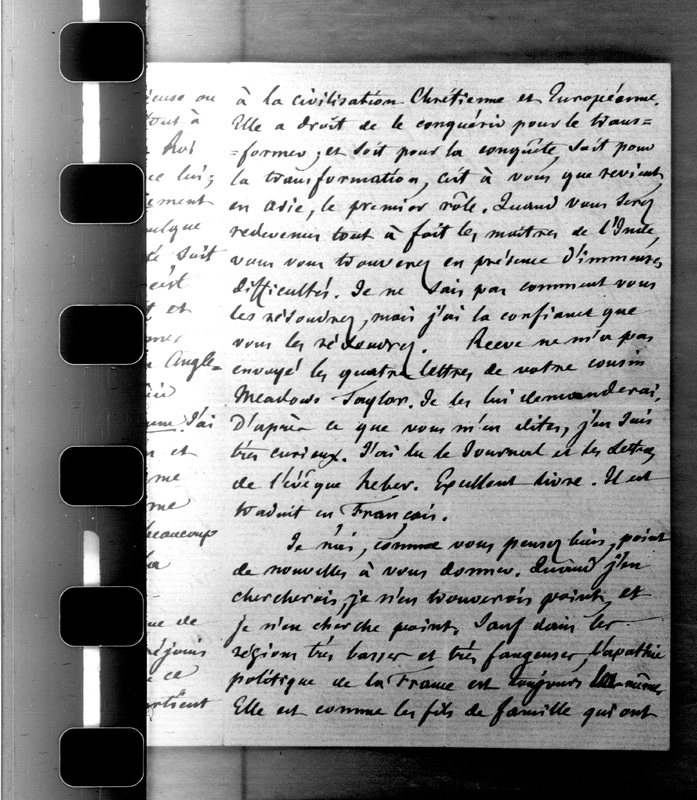 à la civilisation Chrétienne et Européenne.
Elle a droit de le conquérir pour le trans=
=former ; et soit pour la conquête, soit pour
la transformation, c'est à vous que revient,
en Asie, le premier rôle. Quand vous serez
redevenus tout à fait les maîtres de l'Inde,
vous vous trouverez en présence d'immenses
difficultés. Je ne sais pas comment vous
les résoudrez, mais j'ai la confiance que
vous les résoudrez. Reeve ne m'a pas
envoyé les quatre lettres de votre cousin
Meadows Taylor. Je les lui demanderai.
D'après ce que vous m'en dites, j'en suis
très curieux. J'ai lu le Journal et les Lettres
de l'évêque Heber. Excellent livre. Il est
traduit en Français.
Je n'ai, comme vous pensez bien, point
de nouvelles à vous donner. Quand j'en
chercherois, je n'en trouverois point, et
je n'en cherche point. Sauf dans les
régions très basses et très fangeuses, l'apathie
politique de la France est toujours la même.
Elle est comme les fils de famille qui ont
ieuse ou
tout à
Roi
lui ;
ement
uelque
soit
c'est
et
Angle=
J'ai
et
me
me
beaucoup
la
ue de
réjouis
ce